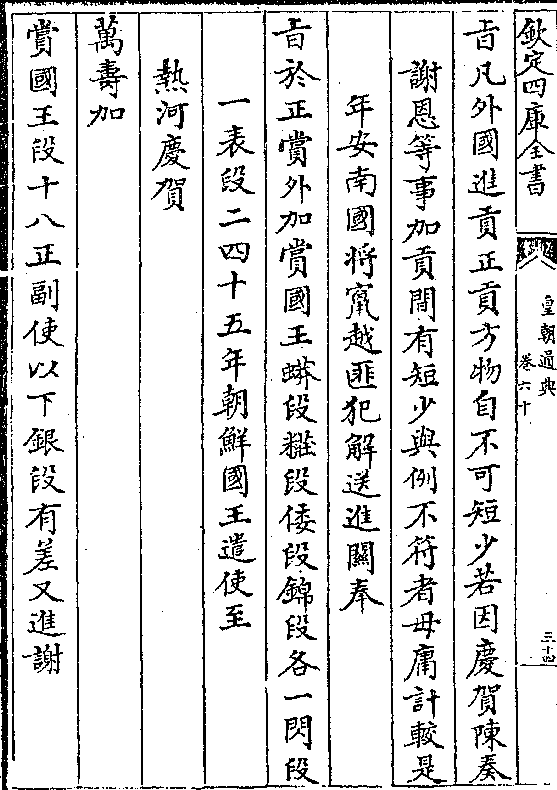 欽定四庫全書
皇朝通典
卷六十
三十四
旨凡外國進貢正貢方物自不可短少若因慶賀陳奏
謝恩等事加貢間有短少與例不符者毋庸計較是
年安南國將竄越匪犯解送進關奉
旨於正賞外加賞國王蟒段糚段倭段錦段各一閃段
一表段二四十五年朝鮮國王遣使至
熱河慶賀
萬壽加
賞國王段十八正副使以下銀段有差又進謝